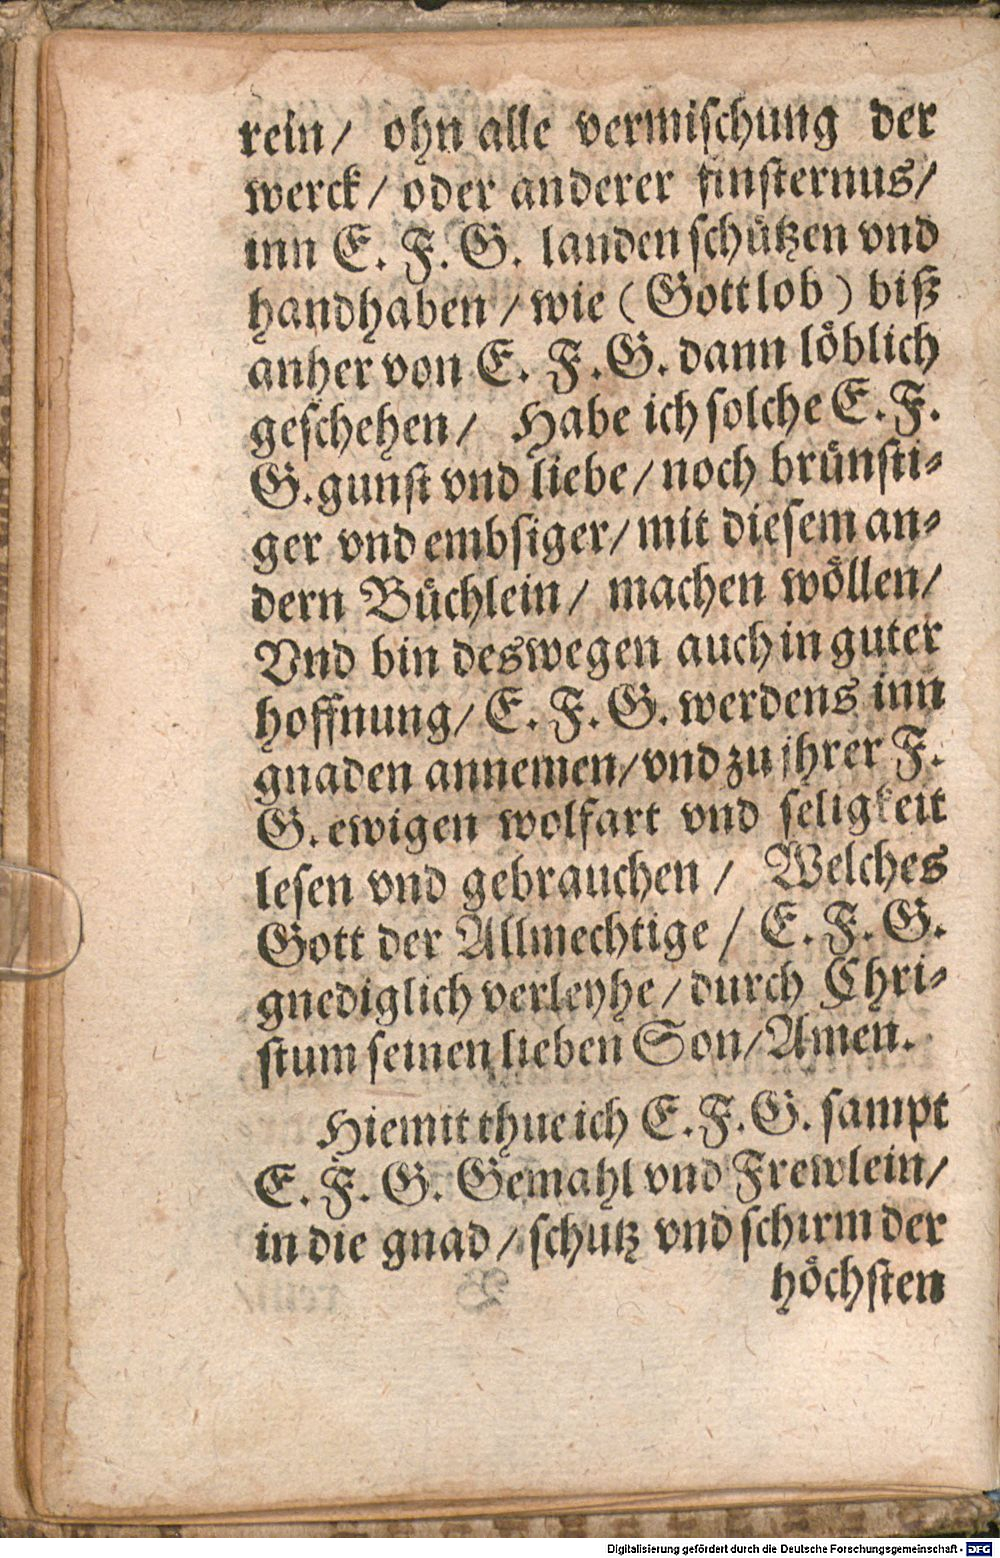 rein/ ohn alle vermischung der
werck/ oder anderer finsternus/
inn E. F. G. landen schützen vnd
handhaben/ wie (Gott lob) biß
anher von E. F. G. dann löblich
geschehen/ Habe ich solche E. F.
G. gunst vnd liebe/ noch brünsti-
ger vnd embsiger/ mit diesem an-
dern Büchlein/ machen wöllen/
Vnd bin deswegen auch in guter
hoffnung/ E. F. G. werdens inn
gnaden annemen/ vnd zu jhrer F.
G. ewigen wolfart vnd seligkeit
lesen vnd gebrauchen/ Welches
Gott der Allmechtige/ E. F. G.
gnediglich verleyhe/ durch Chri-
stum seinen lieben Son/ Amen.
Hiemit thue ich E. F. G. sampt
E. F. G. Gemahl vnd Frewlein/
in die gnad/ schutz vnd schirm der
höchsten
Digitalisierung gefördert durch die Deutsche Forschungsgemeinschaft - DFG